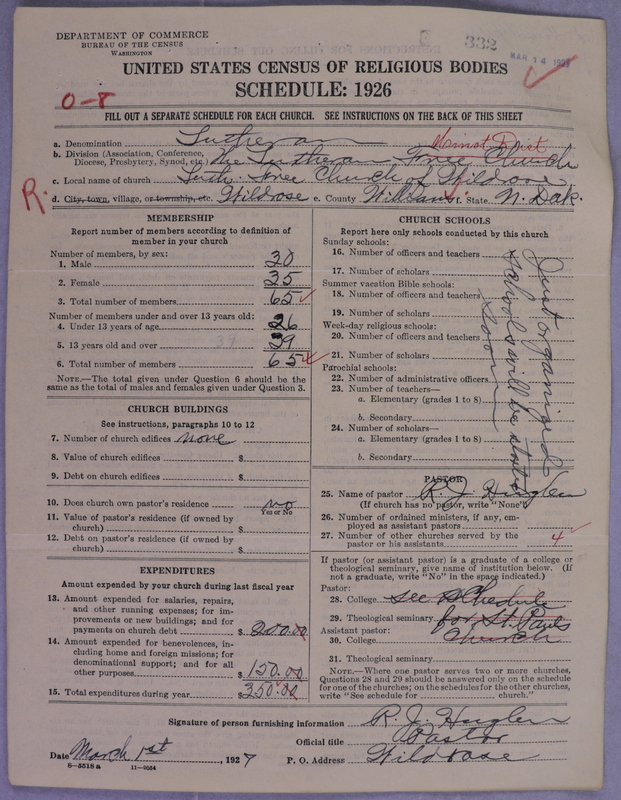 DEPARTMENT OF COMMERCE
BUREAU OF THE CENSUS
WASHINGTON
332
MAR 14 192
UNITED STATES CENSUS OF RELIGIOUS BODIES
SCHEDULE: 1926
0-8
FILL OUT A SEPARATE SCHEDULE FOR EACH CHURCH. SEE INSTRUCTIONS ON THE BACK OF THIS SHEET
a. Denomination Lutheran
Minot Dist
b. Division (Association, Conference, Diocese, Presbytery, Synod, etc.) The Lutheran Free Church
c. Local name of church Luth. Free Church of Wildrose
R.
d. City, town, village, or township, etc. Wildrose e. County Williams f. State N. Dak.
MEMBERSHIP
Report number of members according to definition of
member in your church
Number of members, by sex:
1. Male 30
2. Female 35
3. Total number of members 65
Number of members under and over 13 years old:
4. Under 13 years of age 26
5. 13 years old and over 39 39
6. Total number of members 65
NOTE.—The total given under Question 6 should be the
same as the total of males and females given under Question 3.
CHURCH BUILDINGS
See instructions, paragraphs 10 to 12
7. Number of church edifices none
8. Value of church edifices $
9. Debt on church edifices $
10. Does church own pastor's residence no
Yes or No
11. Value of pastor's residence (if owned by
church) $
12. Debt on pastor's residence (if owned by
church) $
EXPENDITURES
Amount expended by your church during last fiscal year
13. Amount expended for salaries, repairs,
and other running expenses; for im-
provements or new buildings; and for
payments on church debt $ 200.00
14. Amount expended for benevolences, in-
cluding home and foreign missions; for
denominational support; and for all
other purposes $150.00
15. Total expenditures during year $350.00
CHURCH SCHOOLS
Report here only schools conducted by this church
Sunday schools:
16. Number of officers and teachers
17. Number of scholars
Summer vacation Bible schools:
18. Number of officers and teachers
19. Number of scholars
Week-day religious schools:
20. Number of officers and teachers
21. Number of scholars
Parochial schools:
22. Number of administrative officers
23. Number of teachers—
a. Elementary (grades 1 to 8)
b. Secondary
24. Number of scholars—
a. Elementary (grades 1 to 8)
b. Secondary
Just organized
schools will be started
soon
PASTOR
25. Name of pastor R. J. Huglen
(If church has no pastor, write "None")
26. Number of ordained ministers, if any, em-
ployed as assistant pastors
27. Number of other churches served by the
pastor or his assistants 4
If pastor (or assistant pastor) is a graduate of a college or
theological seminary, give name of institution below. (If
not a graduate, write "No" in the space indicated.)
Pastor:
28. College see schedule
29. Theological seminary for St. Pauls
Assistant pastor:
30. College Church
31. Theological seminary
NOTE.—Where one pastor serves two or more churches,
Questions 28 and 29 should be answered only on the schedule
for one of the churches; on the schedules for the other churches,
write "See schedule for church."
Signature of person furnishing information R. J. Huglen
Official title Pastor
Date March 1st, 1927 P. O. Address Wildrose
8-5518 a 11-9554